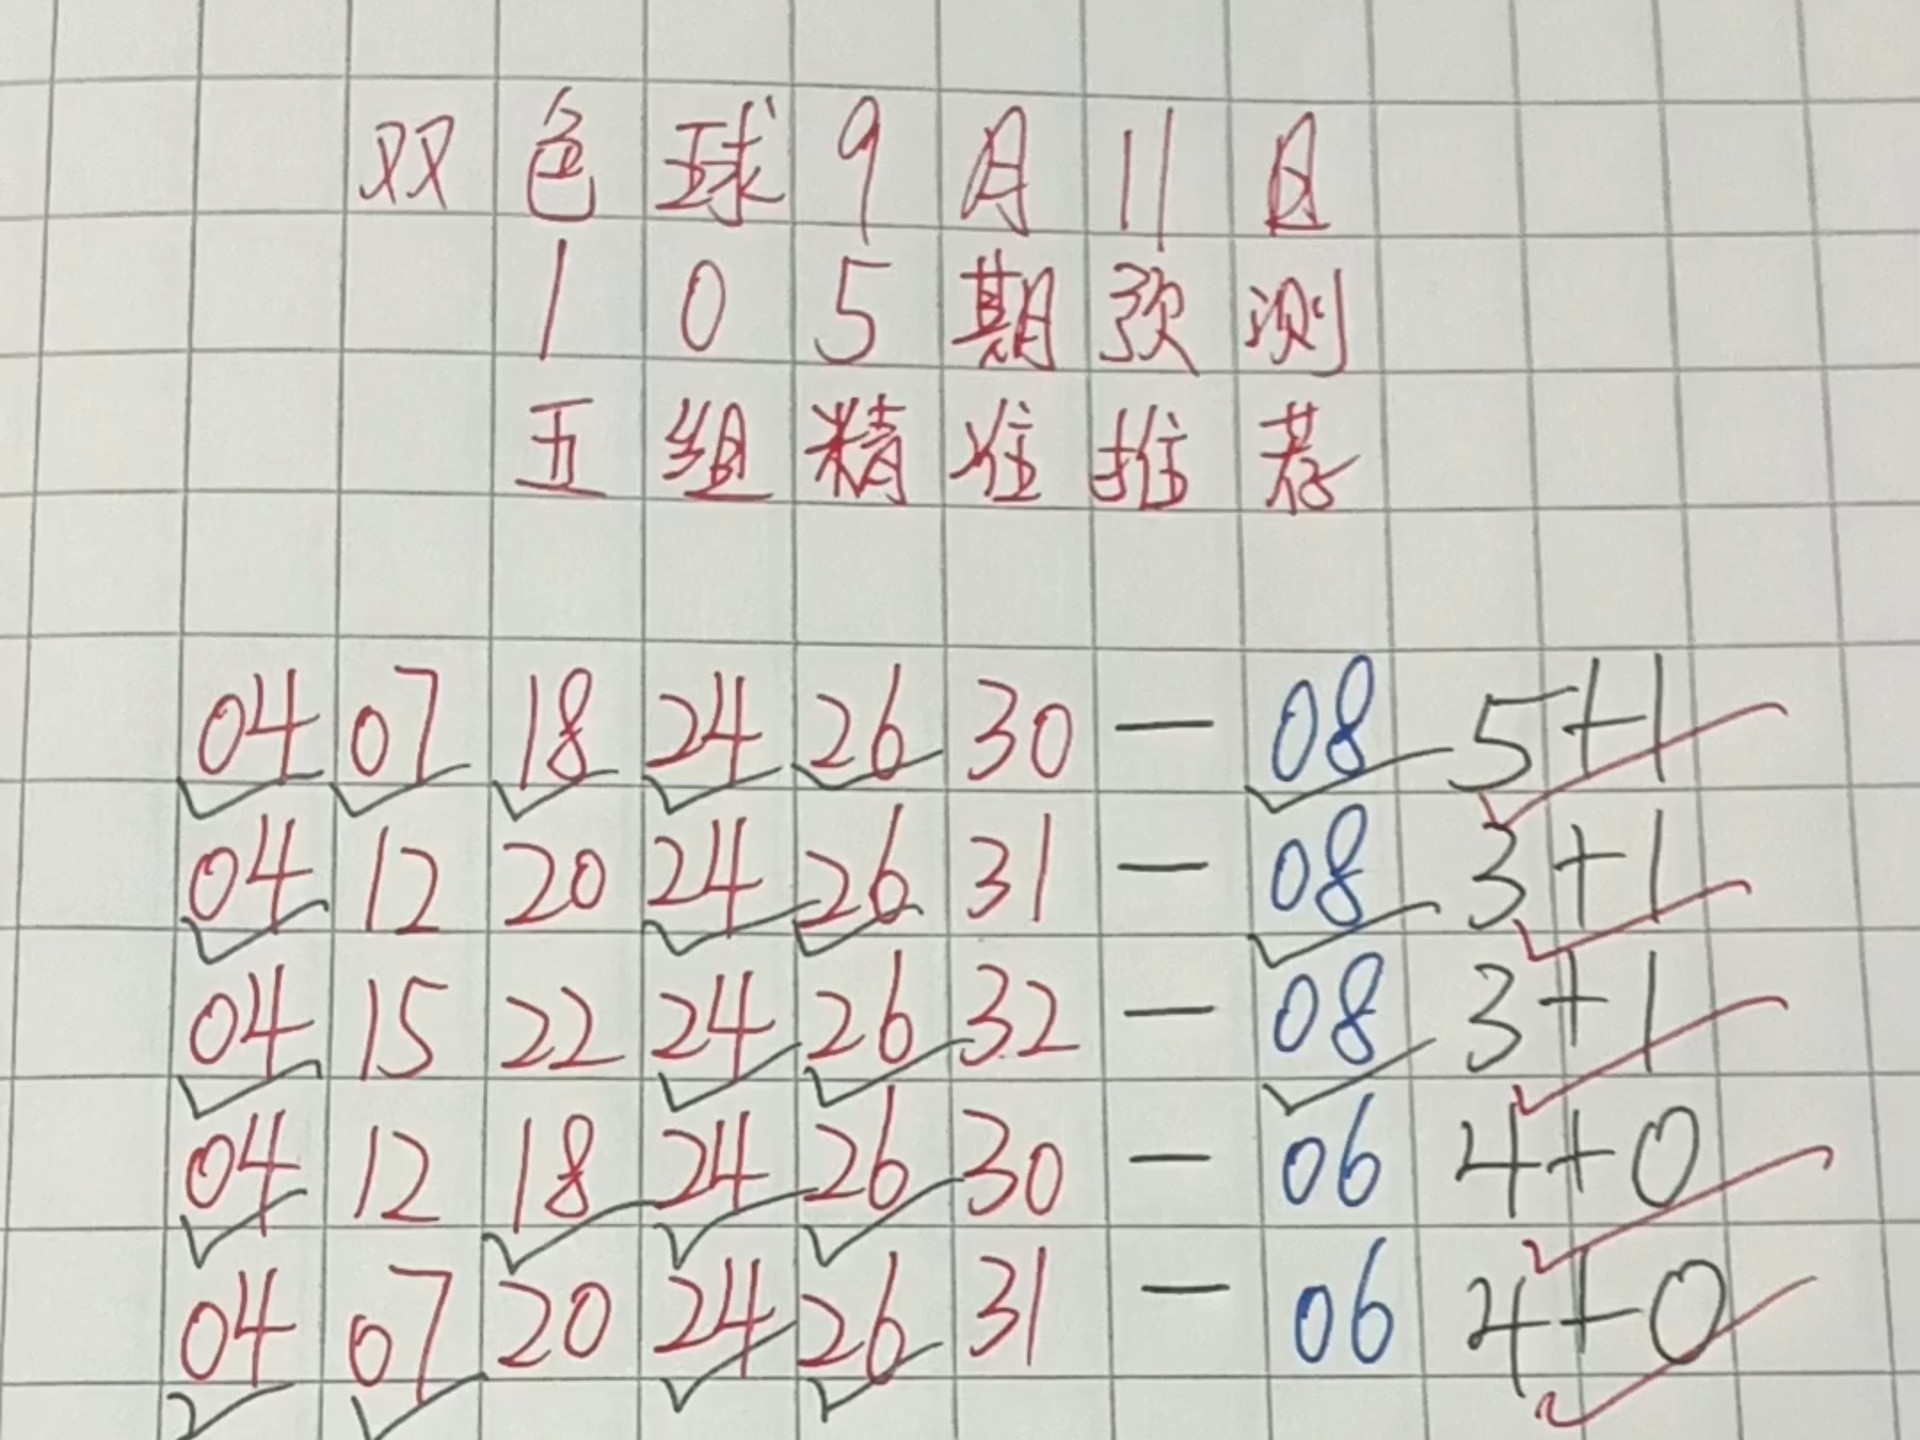 双色球9月11日
105期预测
五组精准推荐
04 07 18 24 26 30 — 08 5+1
04 12 20 24 26 31 — 08 3+1
04 15 22 24 26 32 — 08 3+1
04 12 18 24 26 30 — 06 4+0
04 07 20 24 26 31 — 06 4+0